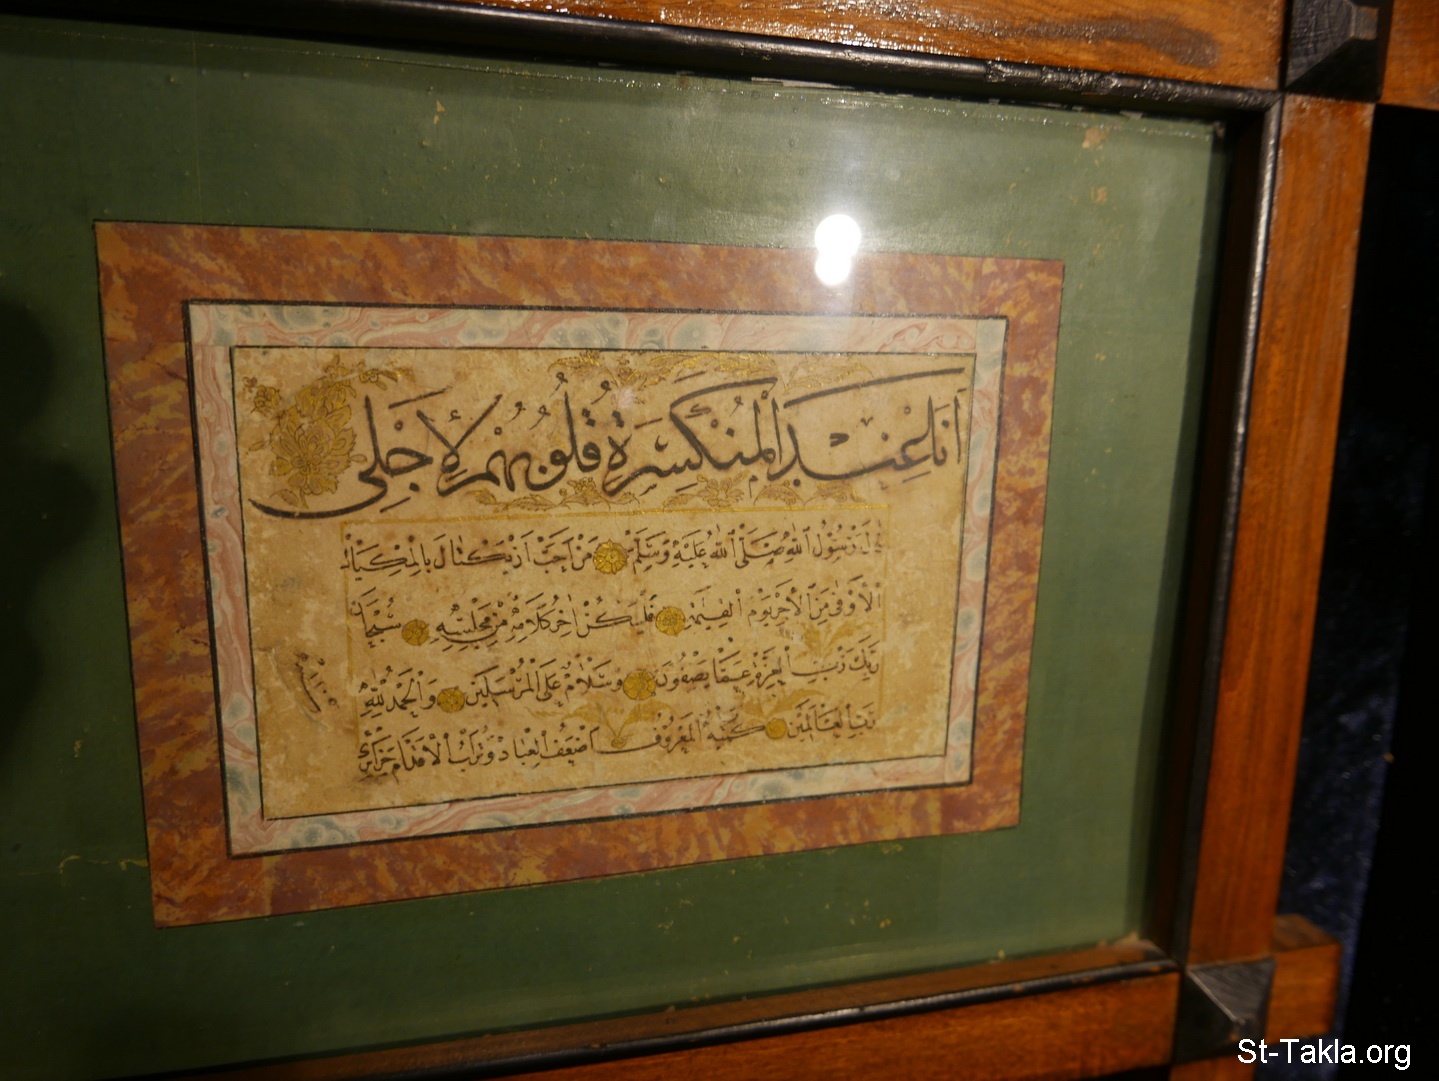 اَنَا عِنْدَ الْمُنْكَسِرَةِ قُلُوبُهُمْ لِاَجْلِي
قَالَ رَسُولُ اللهِ صَلَّى اللهُ عَلَيْهِ وَسَلَّمَ مَنْ اَحَبَّ اَنْ يَكْتَالَ بِالْمِكْيَالِ
الْاَوْفٰى مِنَ الْاَجْرِ يَوْمَ الْقِيٰمَةِ فَلْيَكُنْ اٰخِرُ كَلَامِهِ مِنْ مَجْلِسِهِ سُبْحَانَ
رَبِّكَ رَبِّ الْعِزَّةِ عَمَّا يَصِفُونَ وَسَلَامٌ عَلَى الْمُرْسَلِينَ وَالْحَمْدُ لِلّٰهِ
رَبِّ الْعَالَمِينَ كَتَبَهُ الْمَعْرُوفُ اَضْعَفُ الْعِبَادِ وَتُرَابُ الْاَقْدَامِ
St-Takla.org